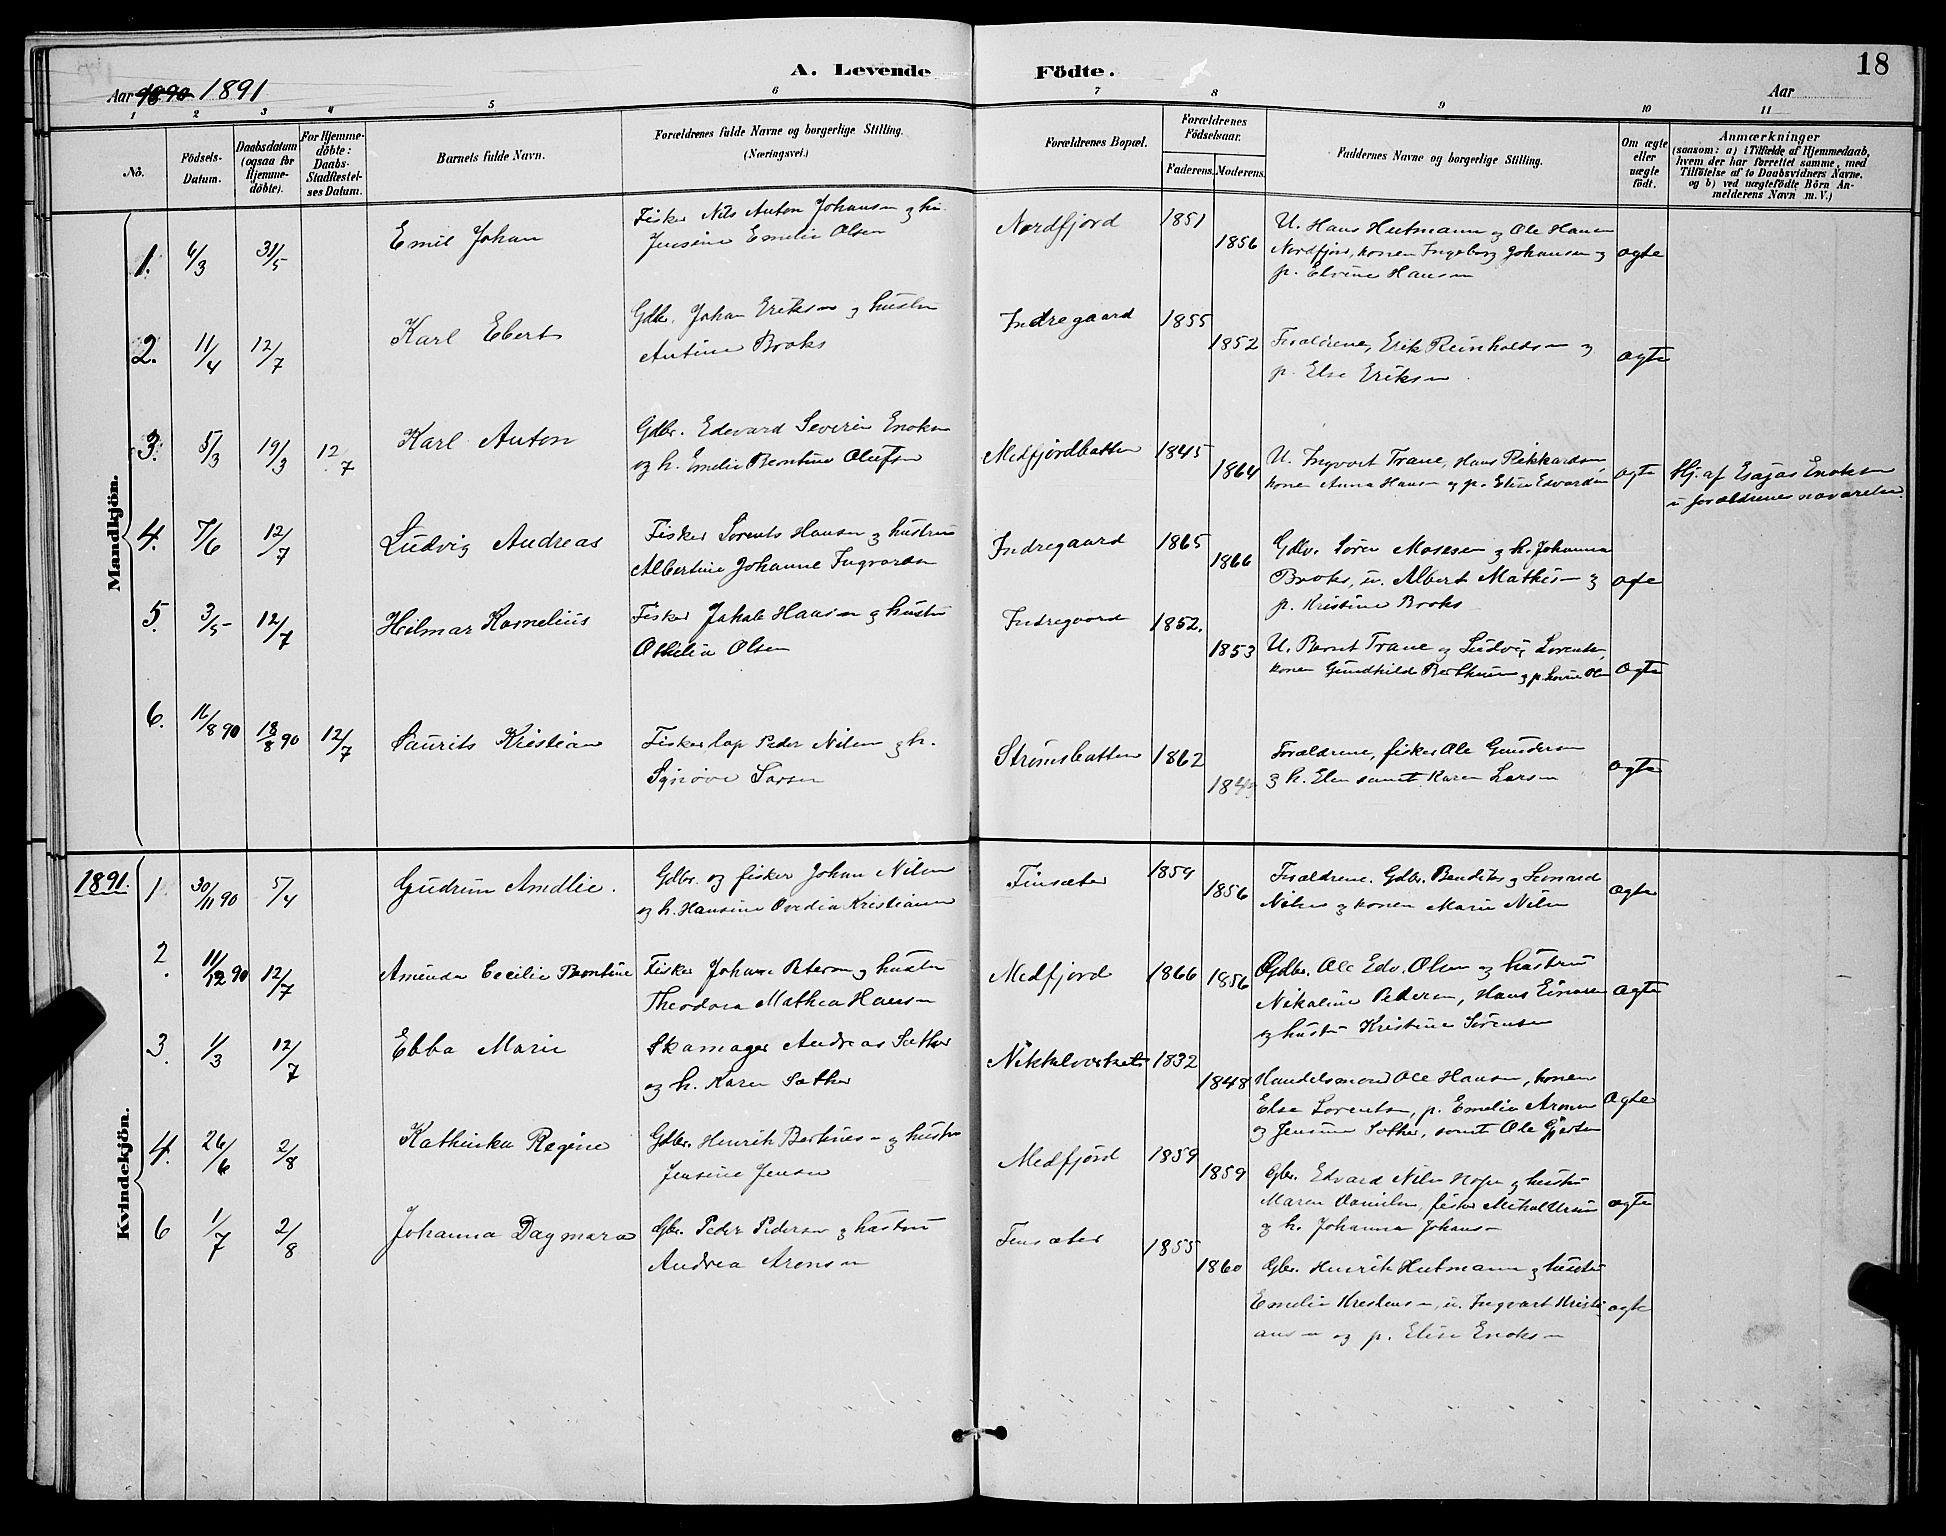 A. Levende Födte.
18
Aar 1890 1891
Aar
1 2 3 4 5 6 7 8 9 10 11
No.
Födsels-Datum.
Daabsdatum (ogsaa for Hjemmedöbte).
For Hjemmedöbte: Daabs-Stadfæstelses Datum.
Barnets fulde Navn.
Forældrenes fulde Navne og borgerlige Stilling. (Næringsvei.)
Forældrenes Bopæl.
Forældrenes Födselsaar.
Faderens. Moderens.
Faddernes Navne og borgerlige Stilling.
Om ægte eller uægte födt.
Anmærkninger
(saasom: a) i Tilfælde af Hjemmedaab, hvem der har forrettet samme, med Tilföielse af to Daabsvidners Navne, og b) ved uægtefödte Börn Anmelderens Navn m. V.)
Mandkjön.
1. 6/3 31/5 Emil Johan
Fisker Nils Anton Johansen og hu.
Jensine Emelie Olsen
Nordfjord 1851 1856
U. Hans Hutmann og Ole Hansen
Nordfjord, konen Ingeborg Johansen og
p. Elvine Hansen
ægte
2. 11/4 12/7 Karl Ebert
Gdbr. Johan Eriksen og hustru
Antine Broks
Indregaard 1855 1852
Forældrene, Erik Reinholdsen og
p. Else Eriksen
ægte
3. 5/3 19/3 12/7 Karl Anton
Gdbr. Edevard Severin Enoksen
og h. Emelie Berntine Olufsen
Medfjordbotten 1845 1864
U. Ingvart Trane, Hans Rikkardsen
konen Anna Hansen og p. Elise Edvardsen
ægte
Hj. af Esajas Enoksen
i forældrenes nærværelse
4. 7/6 12/7 Ludvig Andreas
Fisker Sorents Hansen og hustru
Albertine Johanne Ingvardsen
Indregaard 1865 1866
Gdbr. Søren Mosesen og h. Johanna
Broks, u. Albert Mathisen og
p. Kristine Broks
ægte
5. 3/5 12/7 Hilmar Kornelius
Fisker Jakob Hansen og hustru
Othelia Olsen
Indregaard 1852. 1853
U. Bernt Trane og Ludvig Lorentsen,
konen Gundhilde Berthensen og p. Olsen
ægte
6. 16/8 90 18/8 90 12/7 Laurits Kristian
Fisker lap Peder Nilsen og h.
Synøve Larsen
Strømsbotten 1862 184
Forældrene, fisker Ole Gundersen
og h. Elen samt Karen Larsen
ægte
1891.
Kvindekjön.
1. 30/11 90 5/4 Gudrun Amdlie.
Gdbr. og fisker Johan Nilsen
og h. Hansine Ovedia Kristiansen
Finsæter 1859 1856
Forældrene. Gdbr. Bendiks og Leonard
Nilsen og konen Marie Nilsen
ægte
2. 11/12 90 12/7 Amanda Cecilie Berntine
Fisker Johan Petersen og hustru
Theodora Mathea Hansen
Medfjord 1866 1856
Gdbr. Ole Edv. Olsen og hustru
Nikoline Pedersen, Hans Einarsen
og hustru Kristine Sørensen
ægte
3. 1/3 12/7 Ebba Marie
Skomager Andreas Sæther
og h. Karen Sæther
Nikkelverket 1832 1848
Handelsmand Ole Hansen, konen
Else Lorentsen, p. Emelie Aronsen
og Jensine Sæther, samt Ole Gjertsen
ægte
4. 26/6 2/8 Kathinka Regine
Gdbr. Henrik Berthensen og hustru
Jensine Jensen
Medfjord 1859 1859
Gbr. Edvard Nilsen Hofsøe og hustru
Maren Danielsen, fisker Mikal Ursin
og h. Johanna Johansen
ægte
6 1/7 2/8 Johanna Dagmara
Gbr. Peder Pedersen og hustru
Andrea Aronsen
Finsæter 1855 1860
Gbr. Henrik Hutmann og hustru
Emelie Krestensen, u. Ingvart Kristi
ansen og p. Elise Enoksen
ægte